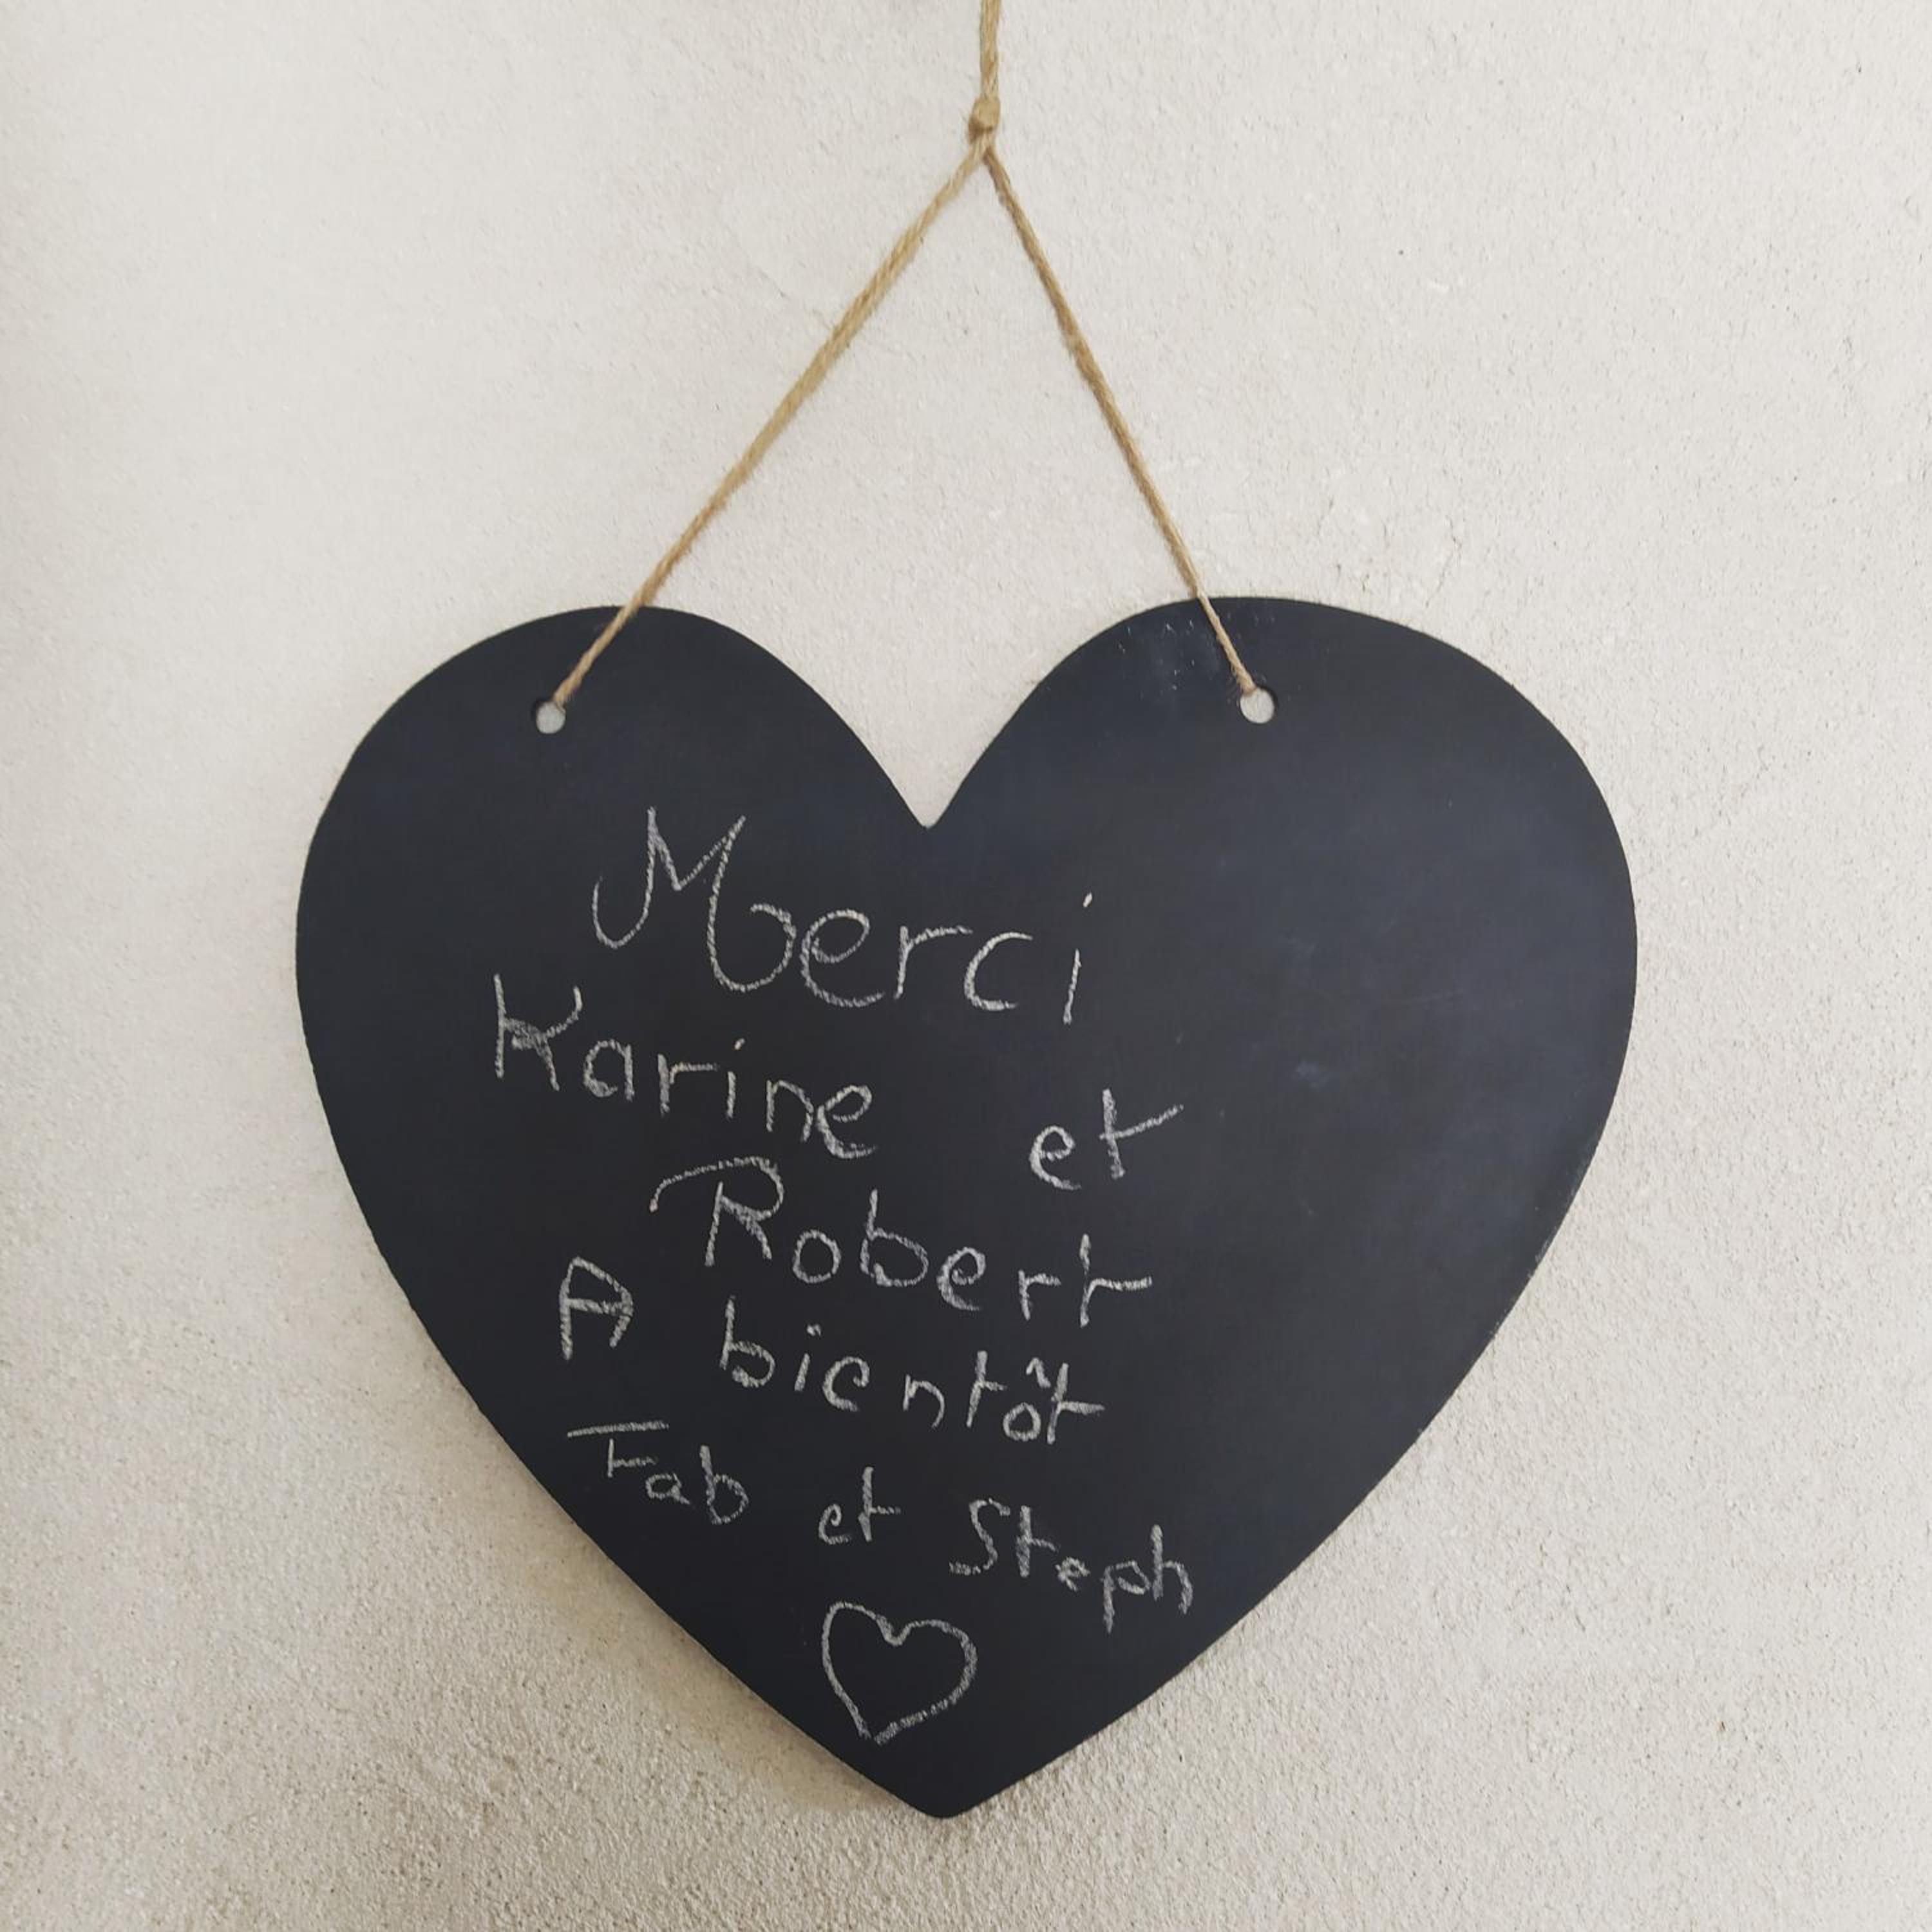 Merci
Karine et
Robert
A bientôt
Fab et Steph